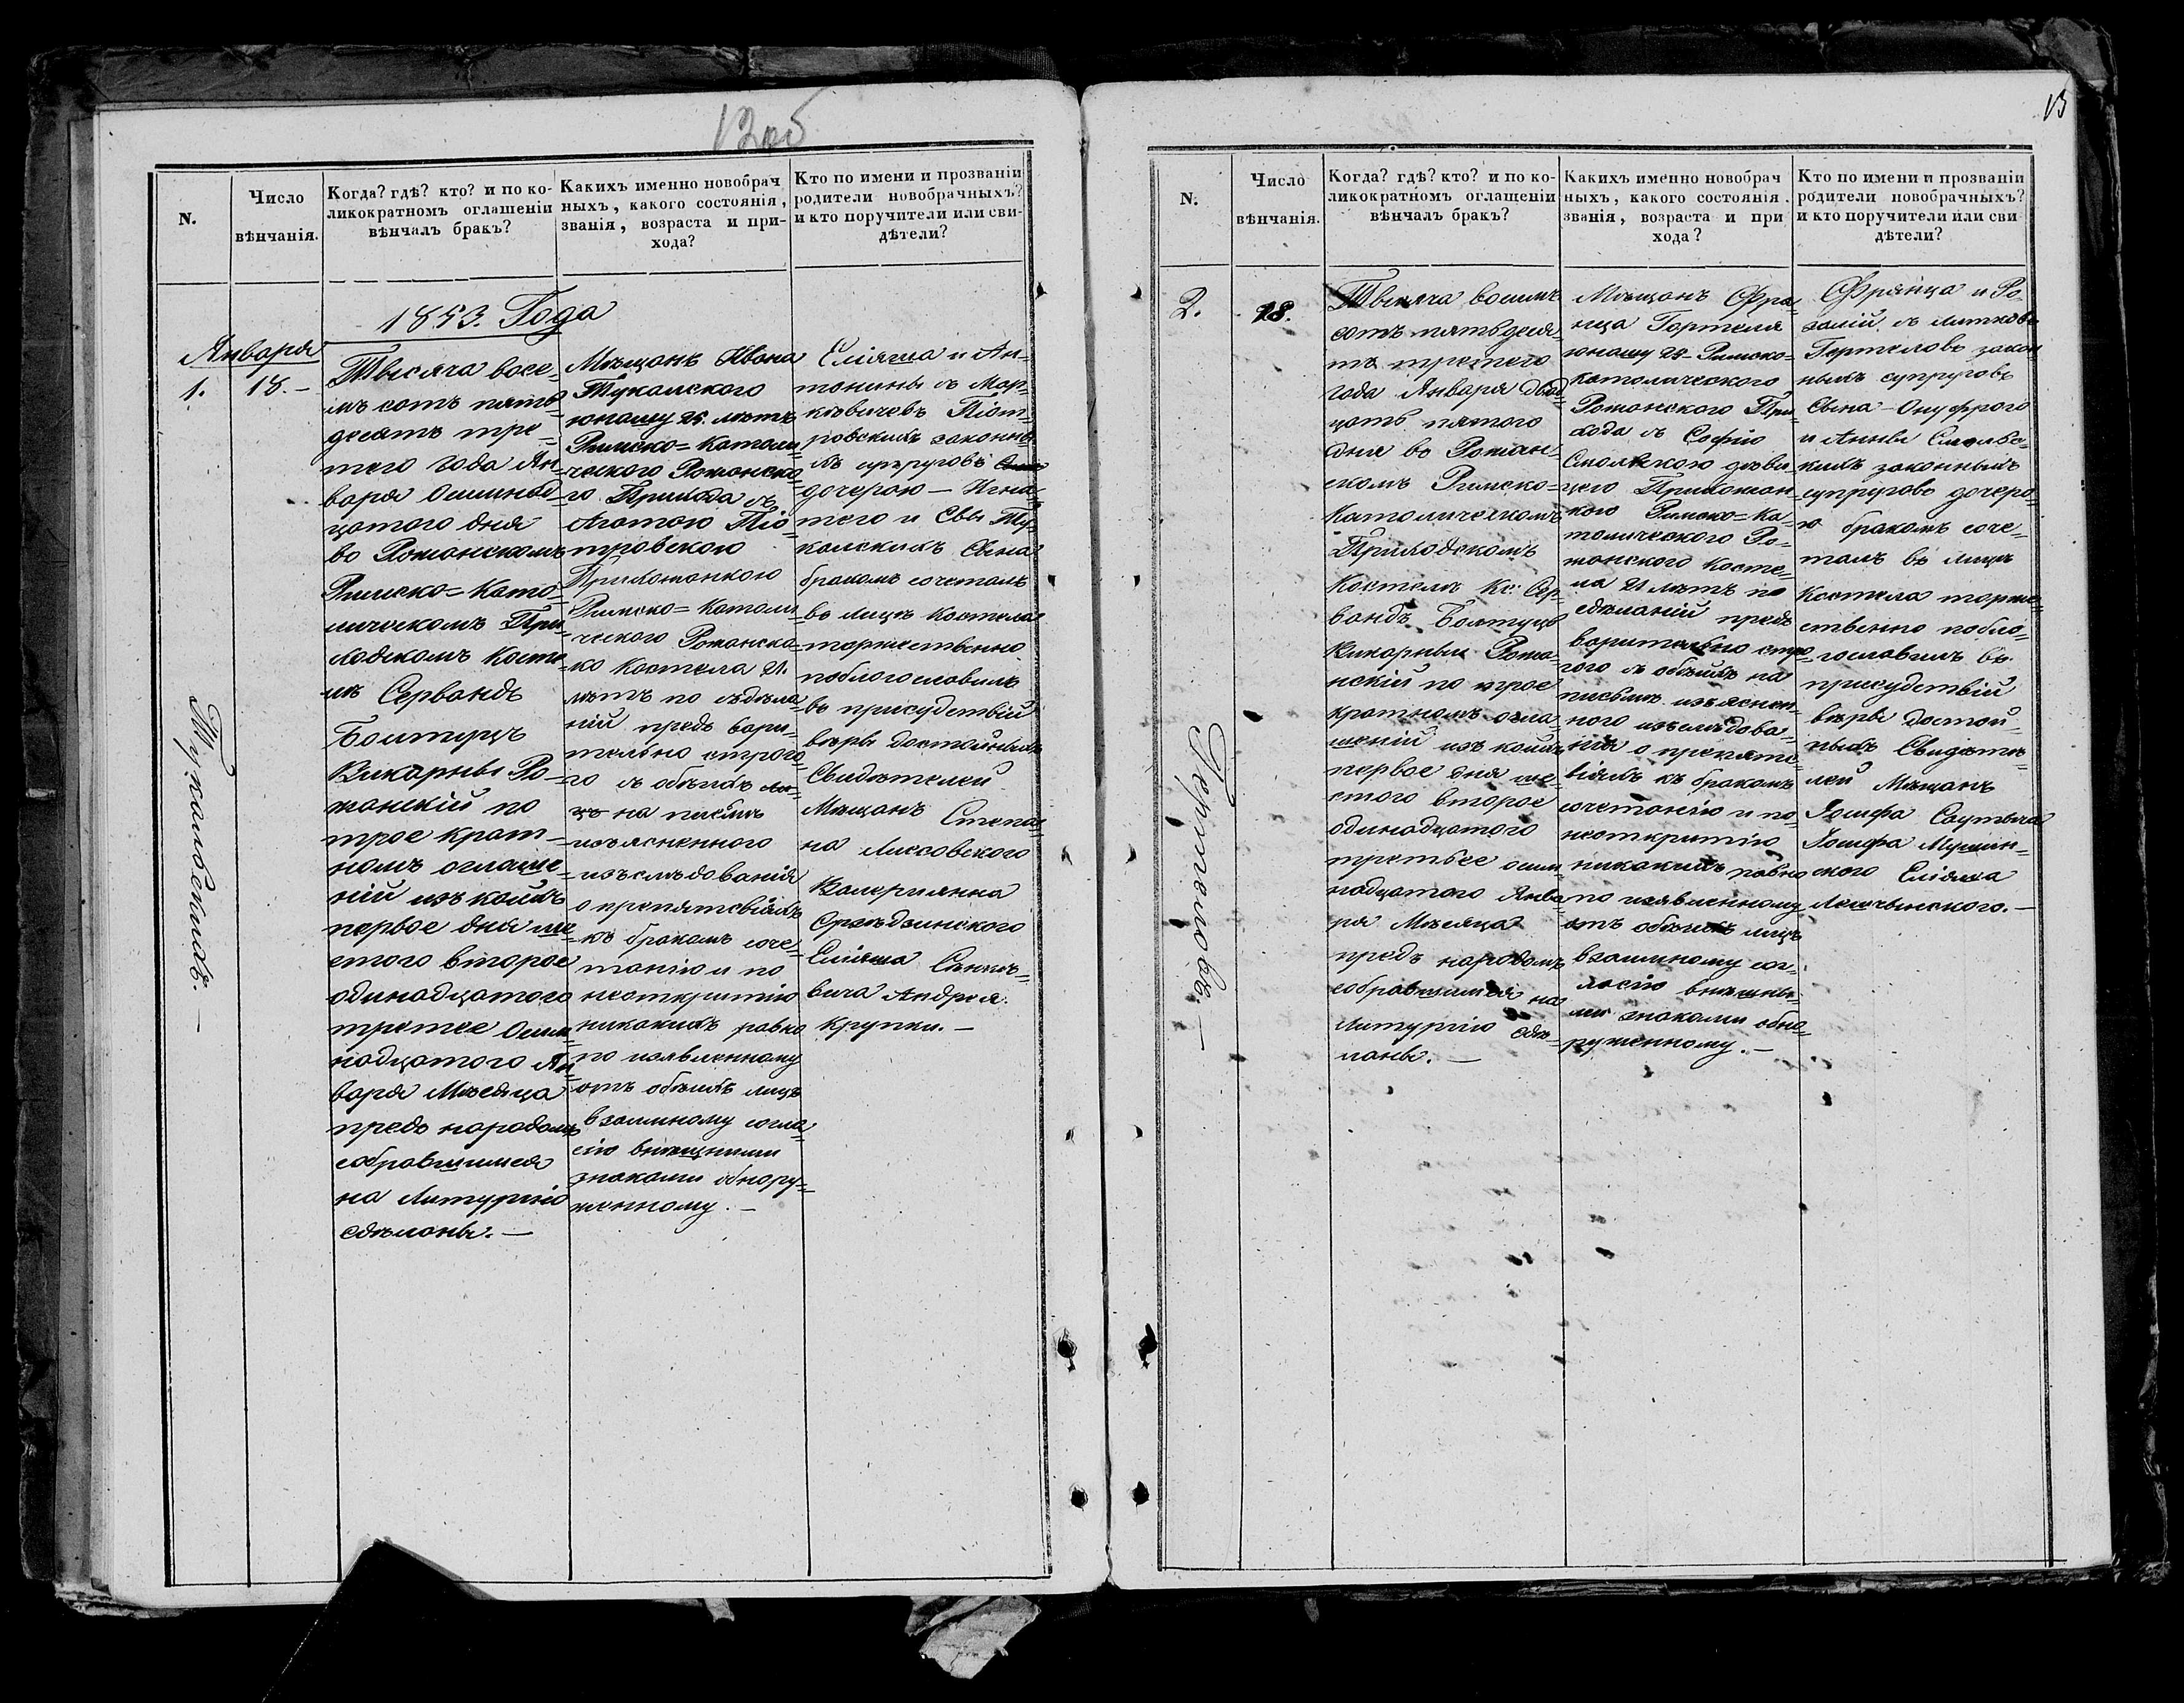 12об
N.
Число
вѣнчанія.
Когда? гдѣ? кто? и по ко-
ликократномъ оглашеніи
вѣнчалъ бракъ?
Какихъ именно новобрач
ныхъ, какого состоянія,
званія, возраста и при-
хода?
Кто по имени и прозваніи
родители новобрачныхъ?
и кто поручители или сви-
дѣтели?
1853. Года
Января
1.
18.-
Тукальскихъ.-
Тысяча восе-
мъ сотъ пять-
десятъ тре-
тего года Ян-
варя Осьмнад-
цатого дня
въ Рожанскомъ
Римско=Като-
лическомъ При-
ходскомъ Косте-
лѣ Сервандъ
Викарный Ро-
жанскій по
трое крат-
номъ оглаше-
ній изъ коихъ
первое дня ше-
стого второе
одинадцатого
третее Осьм-
надцатого Ян-
варя Мѣсяца
предъ народомъ
собравшимся
на Литургію
сдѣланы.-
Мѣщанъ Ивана
Тукалского
юношу 25. лѣтъ
Римско=Католи-
ческого Рожанско-
го Прихода съ
Агатою Піо-
тровскою
Прихожанкою
Римско=Католи-
ческого Рожанско-
го Костела 21.
лѣтъ по сдѣла-
ній предъ вари-
тельно строго-
го съ обѣихъ ли-
цъ на письмѣ
изъясненного
изъслѣдованія
о препятсвіяхъ
къ бракомъ соче-
танію и по
неоткрытію
никакихъ равно
по изявленному
отъ обѣихъ лицъ
взаимному согла-
сію внѣшними
знаками обнору-
женному.-
Еліяша и Ан-
тонины съ Мар-
кевичевъ Піот-
ровскихъ законны-
хъ супруговъ
дочерою - Игна-
тего и Евы Ту-
калскихъ Сына
бракомъ сочеталъ
въ лицѣ Костела
торжественно
поблогословилъ
въ присудствій
вѣры достойныхъ
Свидѣтелей
Мѣщанъ Степа-
на Лиссовского
Валерианна
Еліяша
вича Андрея
Крупки.-
13
N.
Число
вѣнчанія.
Когда? гдѣ? кто? и по ко-
ликократномъ оглашеніи
вѣнчалъ бракъ?
Какихъ именно новобрач
ныхъ, какого состоянія.
званія, возраста и при
хода?
Кто по имени и прозваніи
родители новобрачныхъ?
и кто поручители или сви
дѣтели?
2.
18.
Гертеловъ.-
Тысяча восемъ
сотъ пятьдеся-
тъ третего
года Января двад-
цать пятого
дня въ Рожан-
скомъ Римско-
Католическомъ
Приходскомъ
Костелѣ Кс: Сер-
вандъ
Викарный Рожа-
нскій по трое
кратномъ огла-
шеній изъ коихъ
первое дня ше-
стого второе
одинадцатого
третьее осьм-
надцатого Янва-
ря Мѣсяца
предъ народомъ
собравшимся на
Литургію сдѣ-
ланы.-
Мѣщанъ Фра-
нца Гертеля
юношу 25- Римско-
католического
Рожанского При-
хода съ Софіею
Смольскою дѣви-
цею Прихожан-
кою Римско=Ка-
толического Ро-
жанского Косте-
ла 21 лѣтъ по
сдѣланій предъ
варительно стро-
гого съ обѣихъ на
письмѣ изъяснен-
ного изъслѣдова-
нія о препятс-
віяхъ къ бракомъ
сочетанію и по
неоткрытію
никакихъ равно
по изявленному
отъ обѣихъ лицъ
взаимному сог-
ласію внѣшны-
ми знаками обно-
руженному.-
Францa и Ро-
залій съ
Гертеловъ закон
ныхъ супруговъ
Сына - Онуфрого
и Анны Смольс-
кихъ законныхъ
супруговъ дочеро-
ю бракомъ соче-
талъ въ лицѣ
Костела торже-
ственно побло-
гословилъ въ
присудствій
вѣры достой-
ныхъ Свидѣте-
лей Мѣщанъ
Іосифа
Іосифа
ского Еліяша